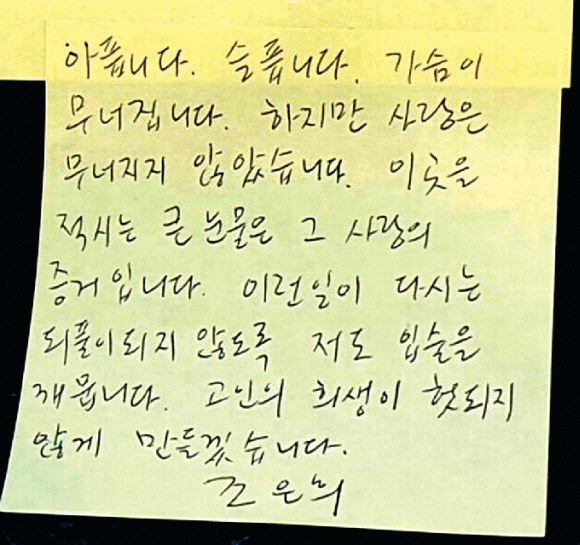 아픕니다. 슬픕니다. 가슴이
무너집니다. 하지만 사랑은
무너지지 않았습니다. 이곳을
적시는 큰 눈물은 그 사랑의
증거입니다. 이런일이 다시는
되풀이되지 않도록 저도 입술을
깨뭅니다. 고인의 희생이 헛되지
않게 만들겠습니다.
조은희